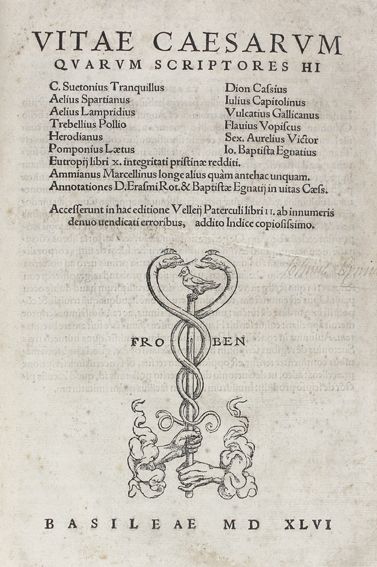 VITAE CAESARVM
QVARVM SCRIPTORES HI
C. Suetonius Tranquillus
Aelius Spartianus
Aelius Lampridius
Trebellius Pollio
Herodianus
Pomponius Lætus
Dion Cassius
Iulius Capitolinus
Vulcatius Gallicanus
Flauius Vopiscus
Sex. Aurelius Victor
Io. Baptista Egnatius
Eutropij libri x. integritati pristinæ redditi.
Ammianus Marcellinus longe alius quàm antehac unquam.
Annotationes D. Erasmi Rot. & Baptistæ Egnatij in uitas Cæss.
Accesserunt in hac editione Velleij Paterculi libri II. ab innumeris
denuo uendicati erroribus, addito Indice copiosissimo.
FRO BEN
BASILEAE MD XLVI